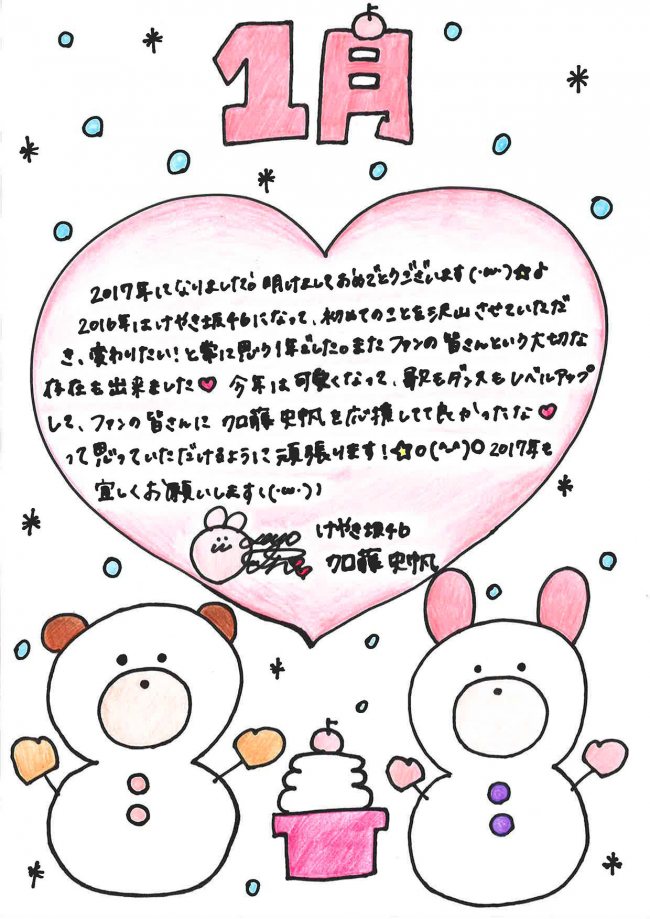 1月
2017年になりました。明けましておめでとうございます(・ω・)☆♪
2016年はけやき坂46になって、初めてのことを沢山させていただ
き、変わりたい!と常に思う1年でした。またファンの皆さんという大切な
存在も出来ました♥ 今年は可愛くなって、歌もダンスもレベルアップ
して、ファンの皆さんに 加藤史帆を応援してて良かったな♥
って思っていただけるように頑張ります!☆o(^^)o 2017年も
宜しくお願いします((・ω・))
けやき坂46
加藤 史帆